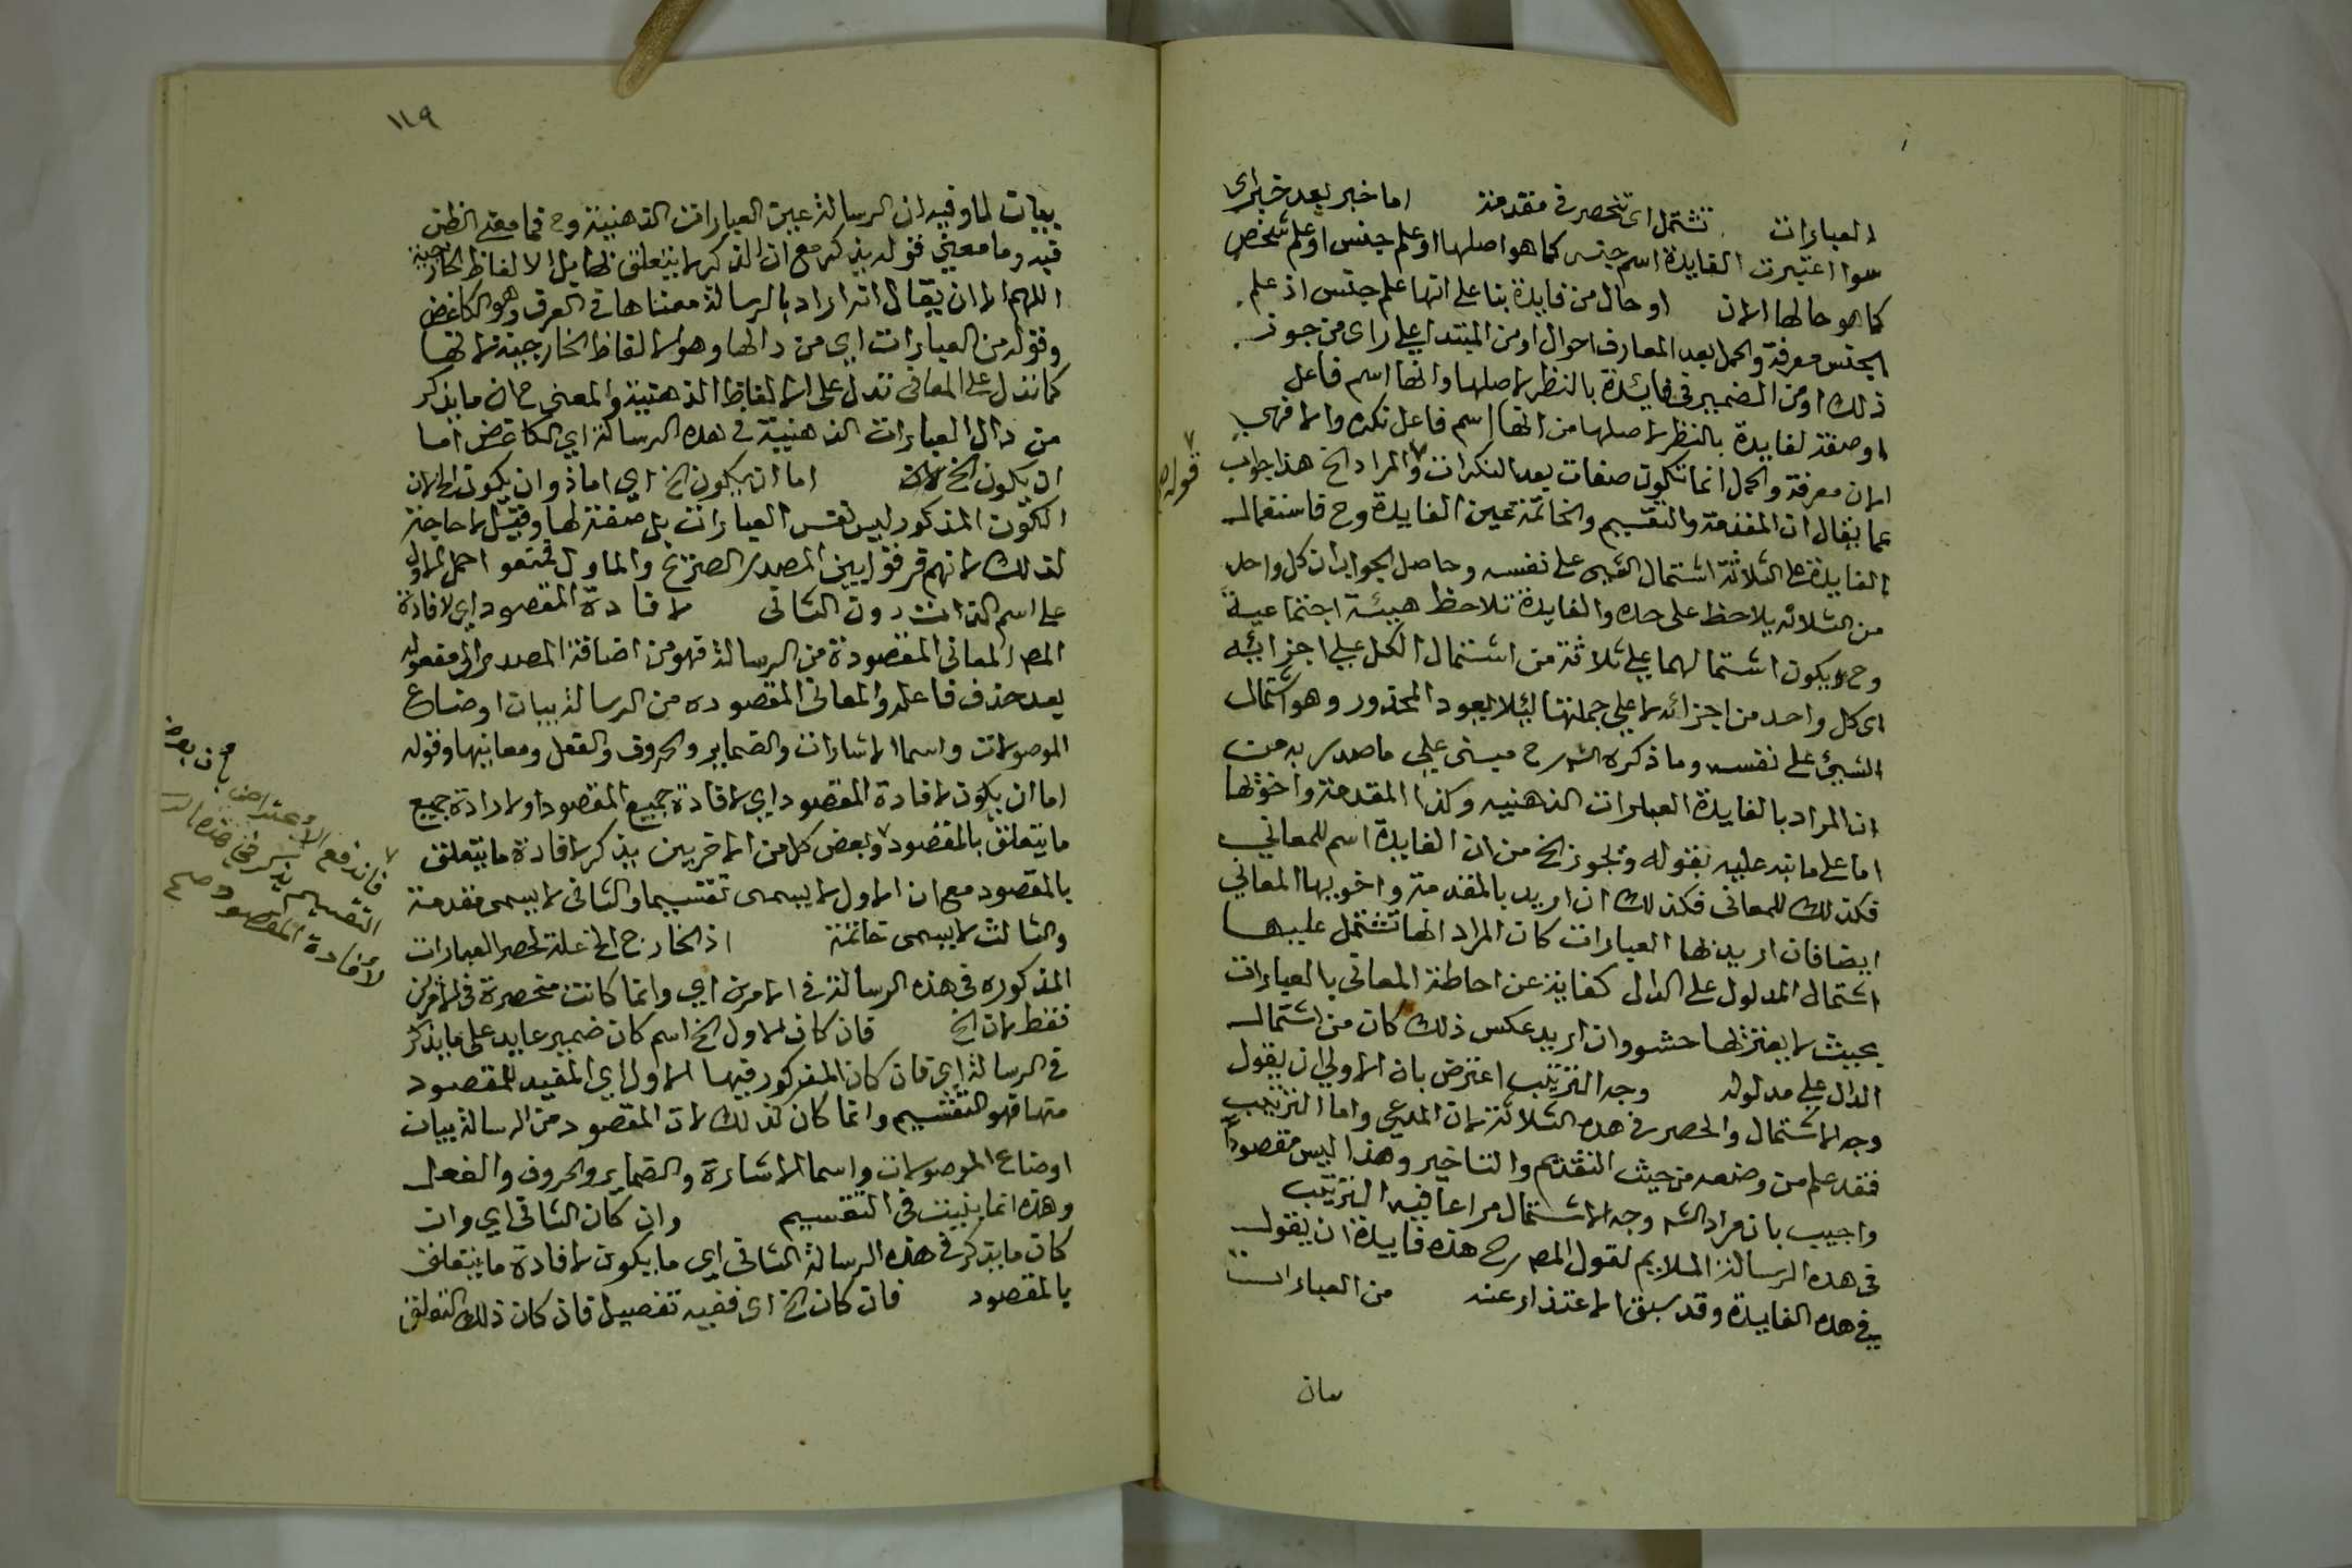 العبارات تشتمل اى تنحصر فى مقدمة اما خبر بعد خبر اى
سوا اعتبرت الفايدة اسم جنس كما هو اصلها او علم جنس او علم شخص
كما هو حالها الان او حال من فايدة بنا على انها علم جنس اذ علم
الجنس معرفة والجمل بعد المعارف احوال او من المبتدا على راى من جوز
ذلك او من الضمير فى فائدة بالنظر لاصلها وانها اسم فاعل
او صفة لفايدة بالنظر لاصلها من انها اسم فاعل نكره والا فهى
الان معرفة والجمل انما تكون صفات بعد النكرات والمراد الخ هذا جواب
قوله
عما يقال ان المقدمة والتقسيم والخاتمة عين الفايدة وح فاستعمال
الفايدة على الثلاثة اشتمال الشى على نفسه وحاصل الجواب ان كل واحد
من الثلاثه يلاحظ على حده والفايدة تلاحظ هيئة اجتماعية
وح ويكون اشتمالهما على ثلاثة من اشتمال الكل على اجزائه
اى كل واحد من اجزائه لا على جملتها لئلا يعود المحذور وهو اشتمال
الشيئ على نفسه وما ذكره الشرح مبنى على ما صدر به من
ان المراد بالفايدة العبارات الذهنيه وكذا المقدمة واخوتها
اما على ما نبه عليه بقوله ويجوز الخ من ان الفايدة اسم للمعاني
فكذلك للمعانى فكذلك ان اريد بالمقدمة واخويها المعاني
ايضا فان اريد بها العبارات كان المراد انها تشتمل عليها
اشتمال المدلول على الدال كفاية عن احاطة المعانى بالعبارات
بحيث لا يعتريها حشو وان اريد عكس ذلك كان من اشتمال
الدال على مدلوله وجه الترتيب اعترض بان الاولى ان يقول
وجه الاشتمال والحصر فى هذه الثلاثة لان المدعى واما الترتيب
فقد علم من وضعه من حيث التقديم والتاخير وهذا ليس مقصودا
واجيب بان مراد الش وجه الاشتمال مراعا فيه الترتيب
فى هذه الرسالة الملايم لقول المص رح هذه فايدة ان يقول
فى هذه الفايدة وقد سبق الاعتذار عنه من العبارات
بيان
١١٩
بيان لما وفيه ان الرسالة عين العبارات الذهنية وح فما معنى الظن
فيه وما معنى قوله يذكر مع ان الذكر لا يتعلق بها بل الالفاظ الخارجية
اللهم الا ان يقال انه اراد بالرسالة معناها فى العرف وهو الكاغض
وقوله من العبارات اى من دالها وهو الالفاظ الخارجية لانها
كما تدل على المعانى تدل على الالفاظ الذهنية والمعنى ح ان ما يذكر
من دال العبارات الذهنية فى هذه الرسالة اي الكاغض اما
ان يكون الخ اما ان يكون الخ اي اما ذو ان يكون الخ لان
الكون المذكور ليس نفس العبارات بل صفة لها وقيل لا حاجة
لذلك لانهم فرقوا بين المصدر الصريح والماول فمنعوا حمل الاول
على اسم الذات دون الثانى لافادة المقصود اى لافادة
المص المعانى المقصودة من الرسالة فهو من اضافة المصدر الى مفعوله
بعد حذف فاعله والمعانى المقصوده من الرسالة بيان اوضاع
الموصولات واسما الاشارات والضماير والحروف والفعل ومعانيها وقوله
اما ان يكون لافادة المقصود اي لافادة جميع المقصود او لارادة جميع
ما يتعلق بالمقصود وبعض كل من الاخريين يذكر لافادة ما يتعلق
بالمقصود مع ان الاول لا يسمى تقسيما والثانى لا يسمى مقدمة
والثالث لا يسمى خاتمة اذ الخارج الخ علة لحصر العبارات
المذكوره فى هذه الرسالة فى الامرين اي وانما كانت منحصرة فى الامرين
فقط لان الخ فان كان الاول الخ اسم كان ضمير عايد على ما يذكر
فى الرسالة اى فان كان المذكور فيها الاول اي المفيد للمقصود
منها فهو التقسيم وانما كان كذلك لان المقصود من الرسالة بيان
اوضاع الموصولات واسما الاشارة والضماير والحروف والفعل
وهذه انما بينت فى التقسيم وان كان الثانى اي وان
كان ما يذكر فى هذه الرسالة الثانى اى ما يكون لافادة ما يتعلق
بالمقصود فان كان الخ اى ففيه تفصيل فان كان ذلك التعلق
فاندفع الاعتراض بان بعض
التقسيم يذكر
لافادة المقصود صح